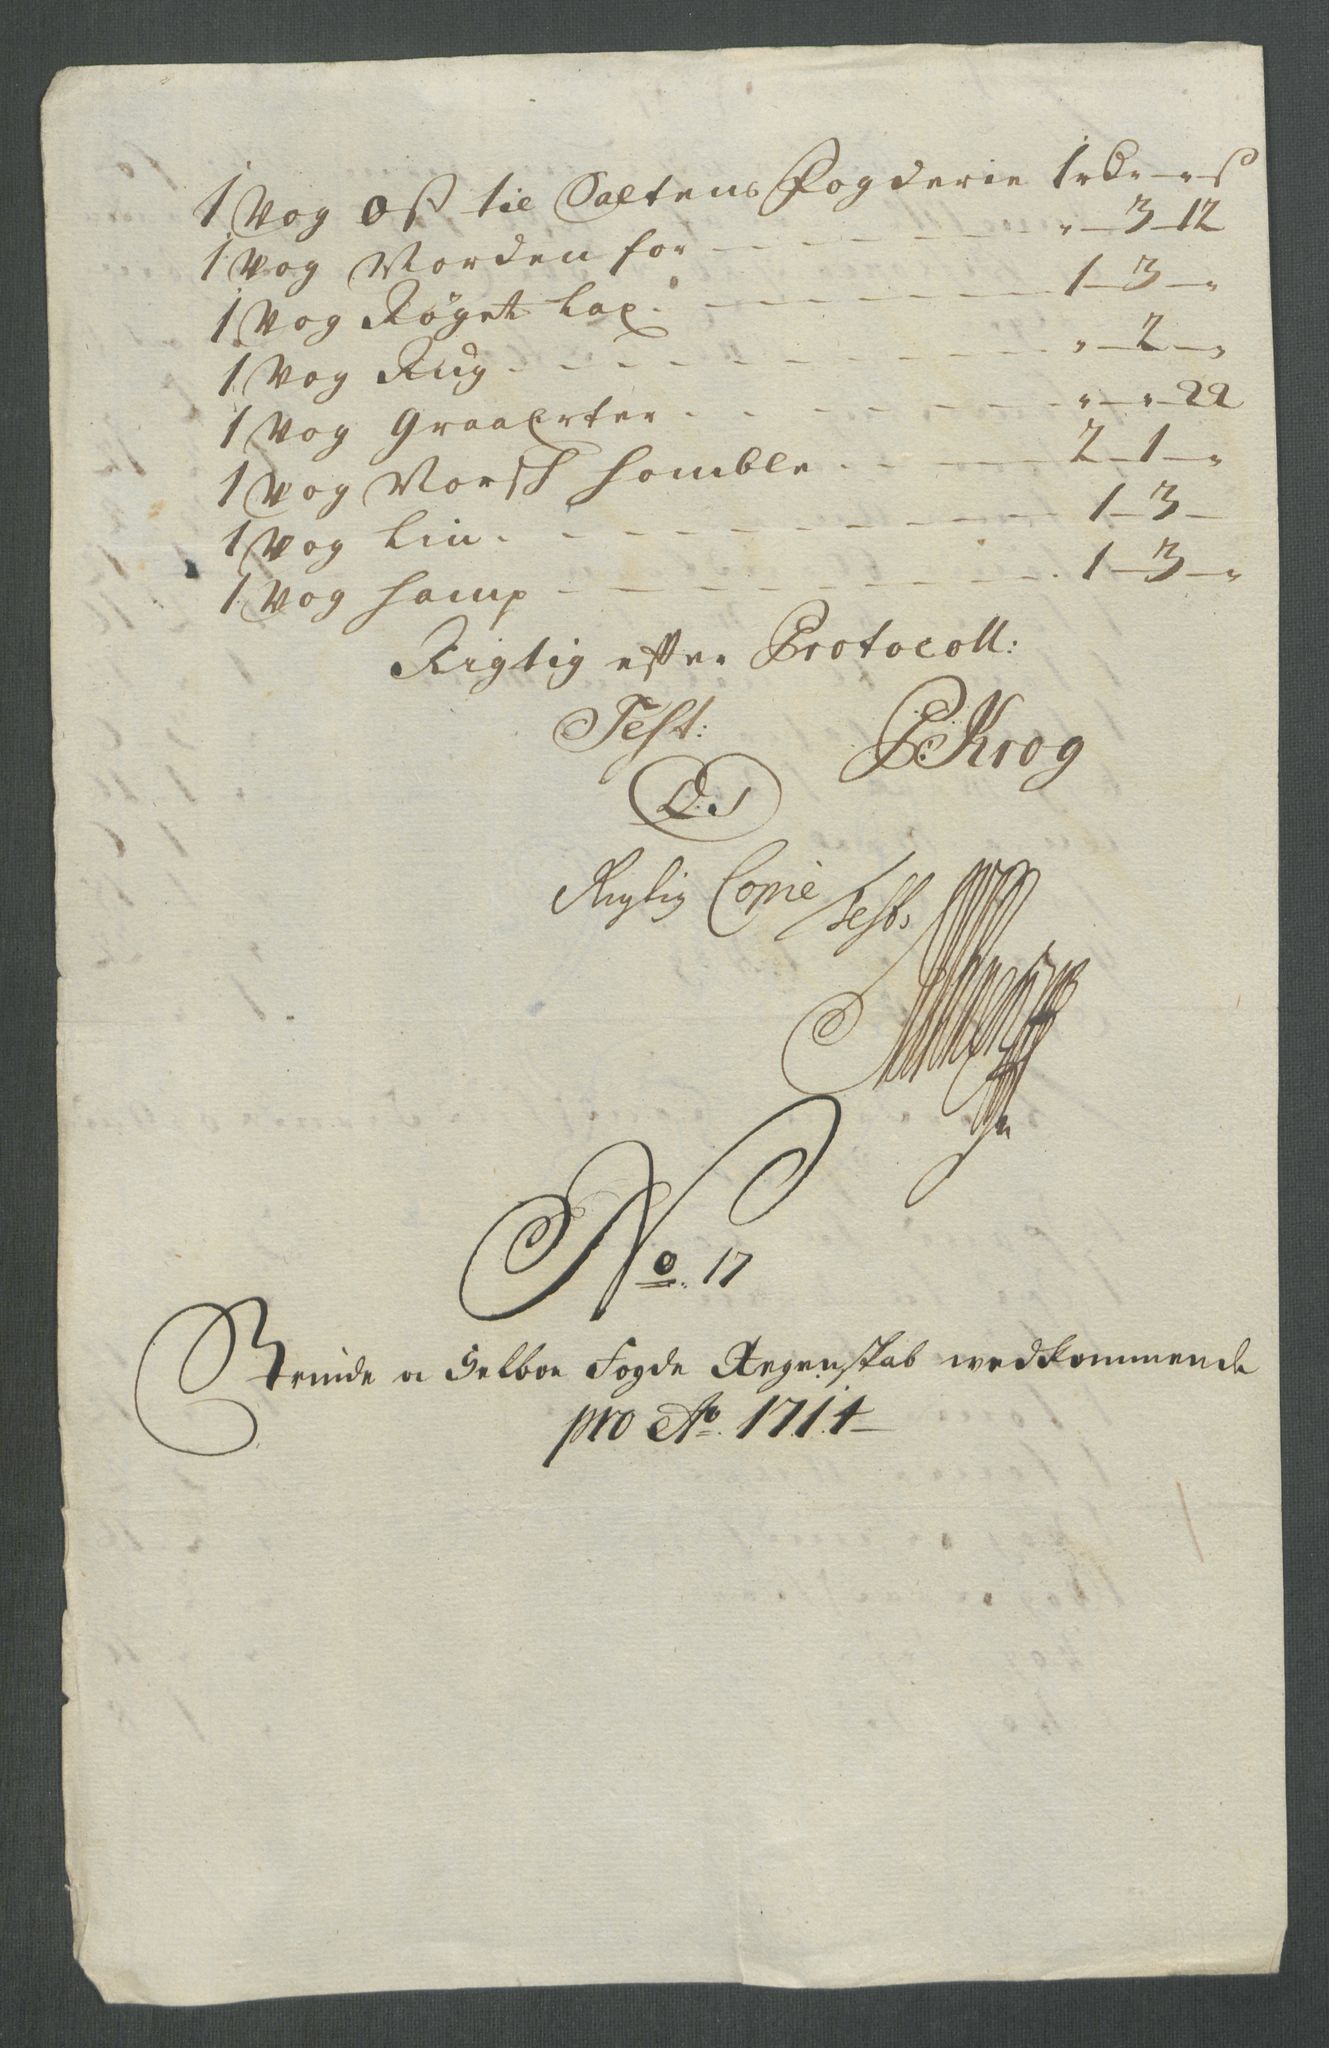 1 Vog Ost til Saltens Fogderie 1 rd " - " ß
1 Vog Norden for - - - - - " - 3 - 12
1 Vog Røget Lax. - - - - - 1 - 3 - "
1 Vog Rug - - - - - " - 2 - "
1 Vog Graaerter - - - - - " - " - 22
1 Vog Norsk Homble - - - 2 - 1 - "
1 Vog Lin - - - - - 1 - 3 -
1 Vog Hamp - - - - - 1 - 3 - "
Rigtig efter Protocoll:
Test: P: Krog
L.S
Rigtig Copie Test:
No. 17
Strinde oc Selboe Fogde Regenskab vedkommende
pro Ao. 1714